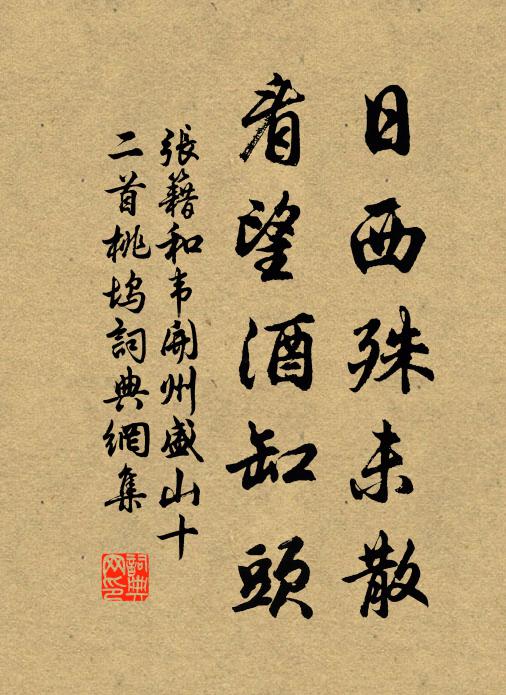 日西殊未散
看望酒缸頭
張籍和韦開州盛山十
二首桃塢詞典網集
詞典
网印